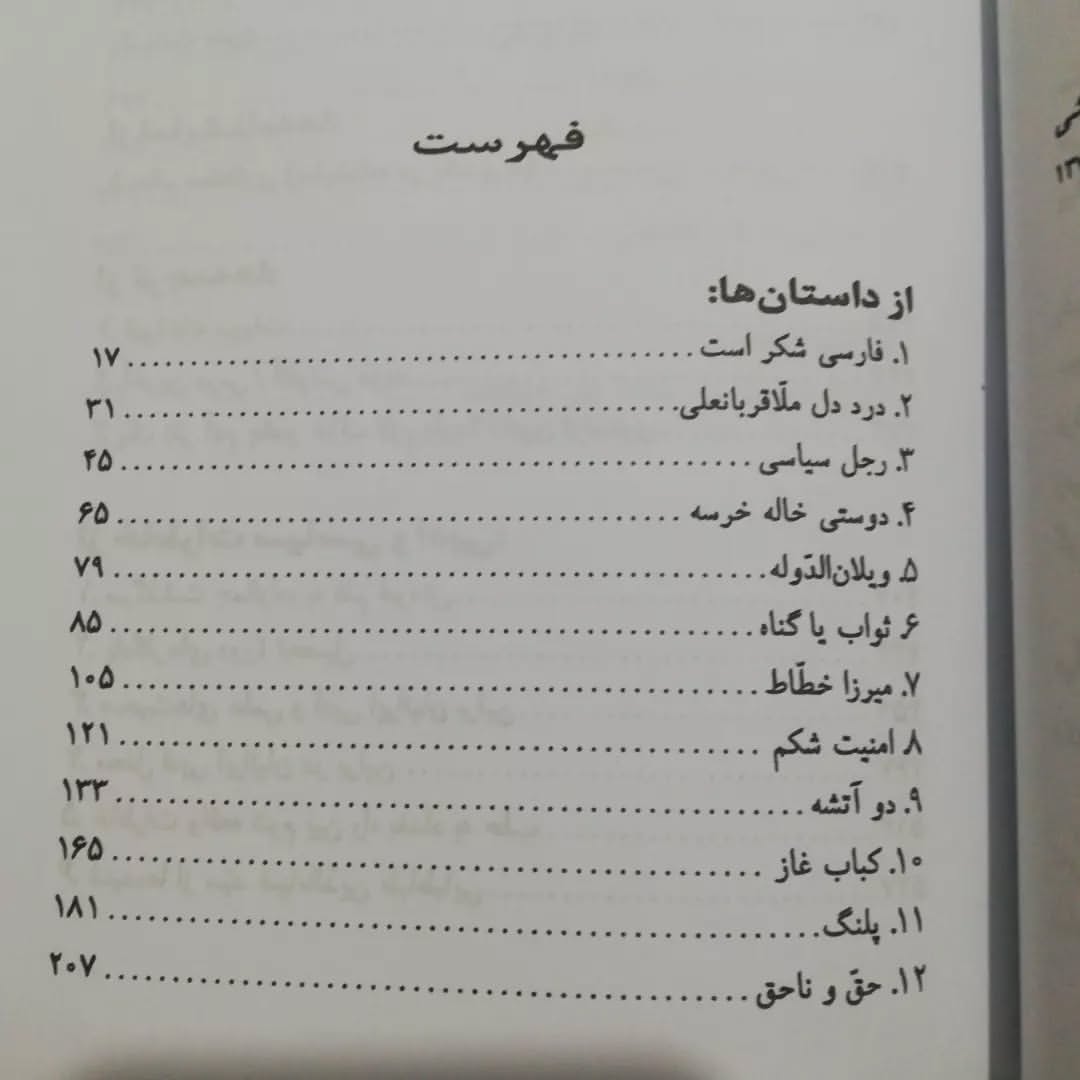 فهرست
از داستان‌ها:
۱. فارسی شکر است ........................................ ۱۷
۲. درد دل ملّاقربانعلی ........................................ ۳۱
۳. رجل سیاسی ........................................ ۴۵
۴. دوستی خاله خرسه ........................................ ۶۵
۵. ویلان‌الدّوله ........................................ ۷۹
۶. ثواب یا گناه ........................................ ۸۵
۷. میرزا خطّاط ........................................ ۱۰۵
۸. امنیت شکم ........................................ ۱۲۱
۹. دو آتشه ........................................ ۱۳۳
۱۰. کباب غاز ........................................ ۱۶۵
۱۱. پلنگ ........................................ ۱۸۱
۱۲. حقّ و ناحق ........................................ ۲۰۷